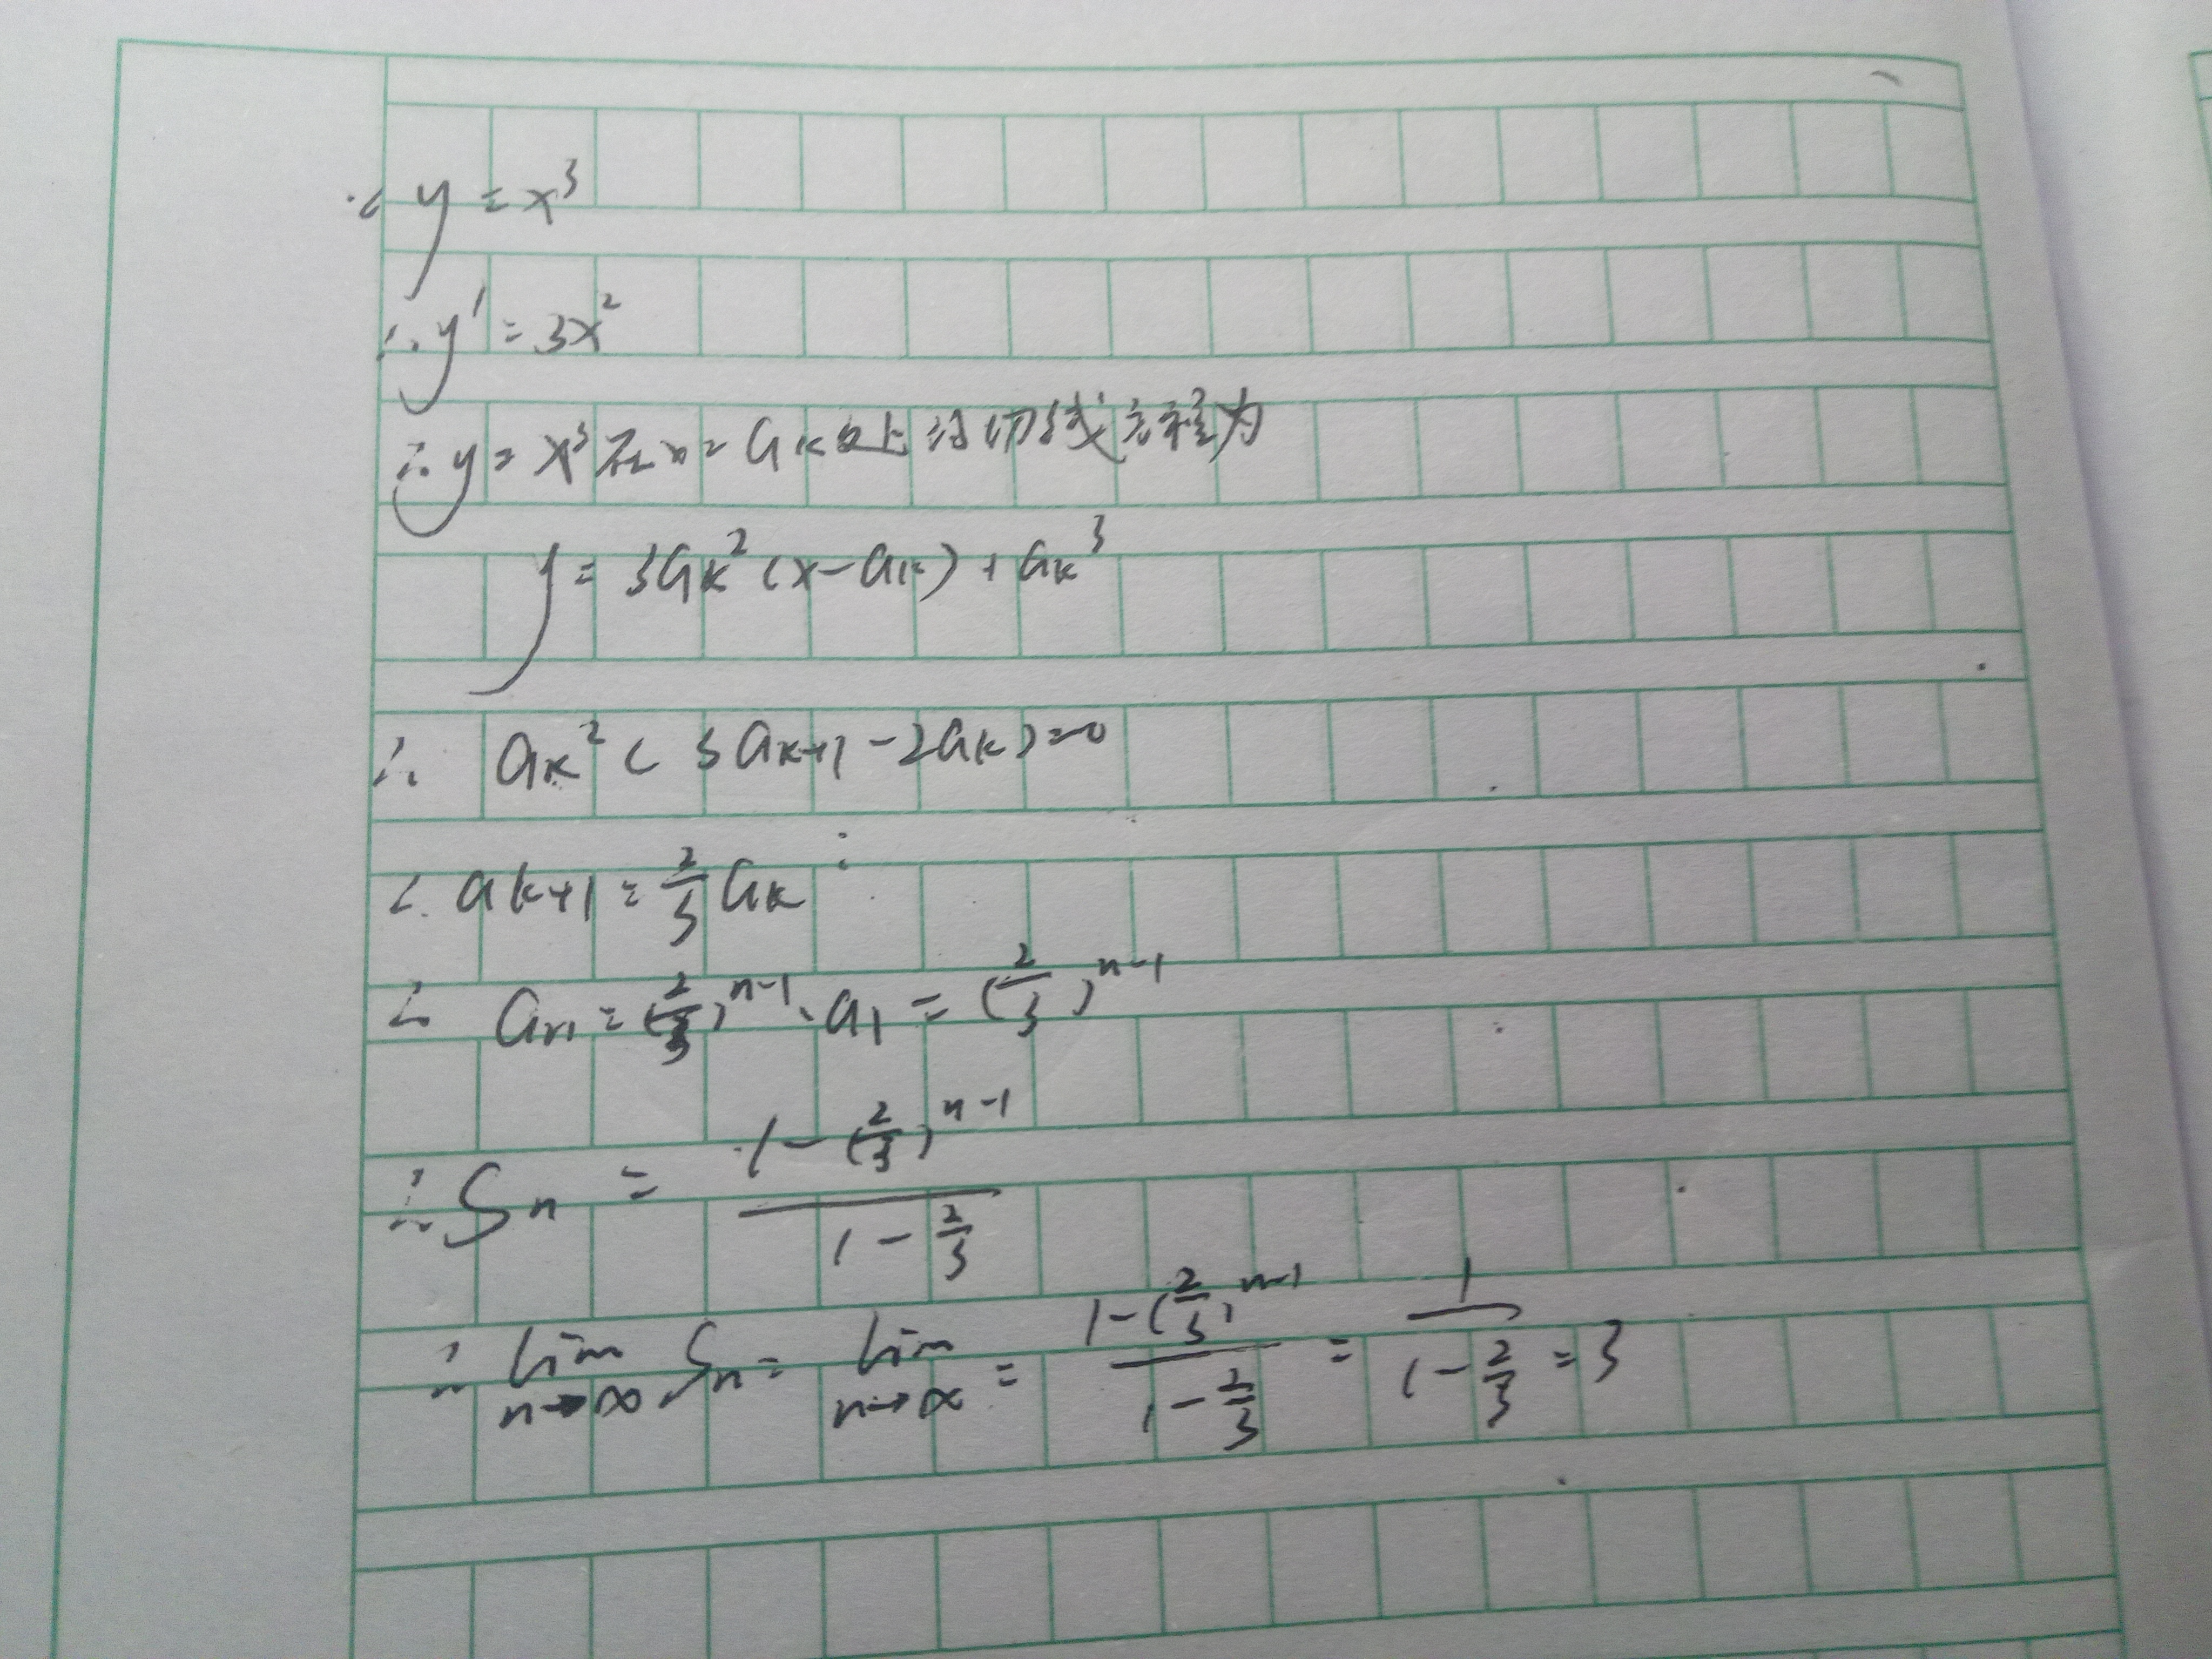 ∵ y = x³
∴ y' = 3x²
∴ y = x³在x=aₖ处的切线方程为
y = 3aₖ²(x-aₖ)+aₖ³
∴ aₖ²(3aₖ₊₁-2aₖ)=0
∴ aₖ₊₁ = 2/3 aₖ
∴ aₙ = (2/3)ⁿ⁻¹·a₁ = (2/3)ⁿ⁻¹
∴ Sₙ = (1-(2/3)ⁿ⁻¹)/(1-2/3)
∴ lim n→∞ Sₙ = lim n→∞ = (1-(2/3)ⁿ⁻¹)/(1-2/3) = 1/(1-2/3) = 3